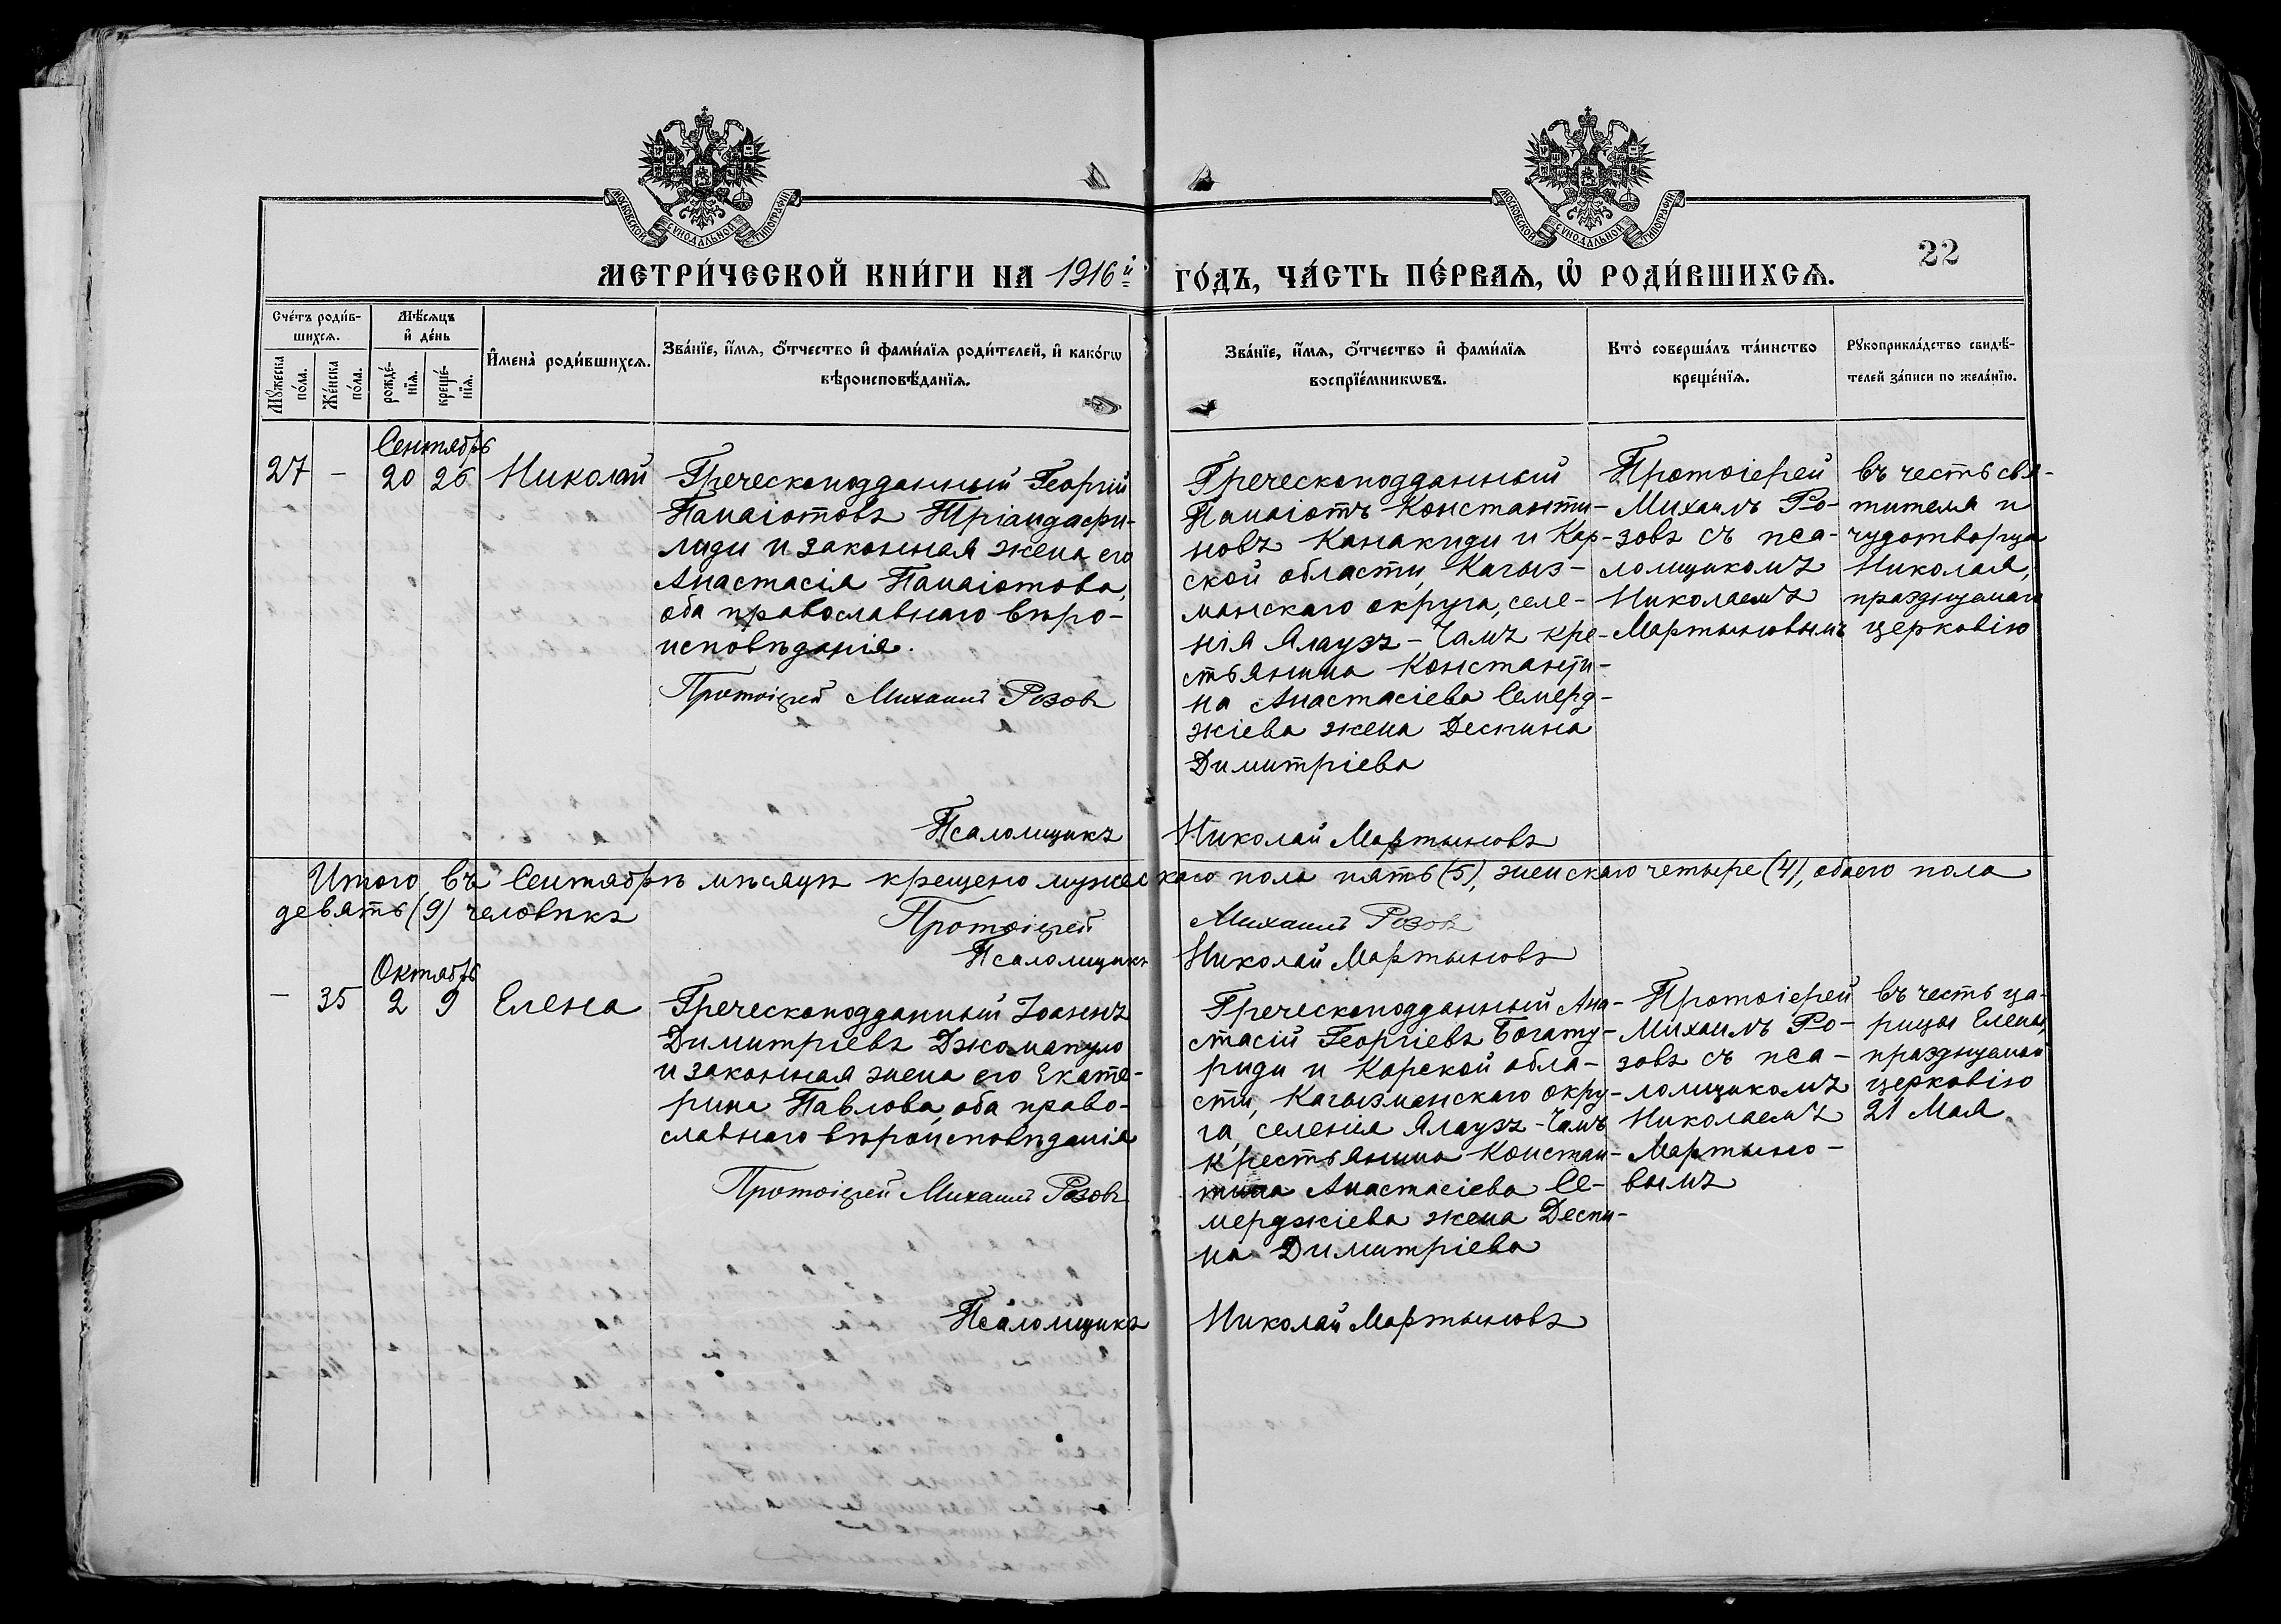 МОСКОВСКОЙ СѴНОДАЛЬНОЙ ТИПОГРАФІИ.
МОСКОВСКОЙ СѴНОДАЛЬНОЙ ТИПОГРАФІИ.
22
МЕТРИ́ЧЕСКОЙ КНИ́ГИ НА 1916й ГО́ДЪ, ЧА́СТЬ ПЕ́РВАѦ, Ѡ҆ РОДИ́ВШИХСѦ.
Сче́тъ роди́в-
шихсѧ.
Мꙋ́жеска
по́ла.
Же́нска
по́ла.
Мѣ́сѧцъ
и҆ де́нь
рожде́-
нїѧ.
креще́-
нїѧ.
И҆мена̀ роди́вшихсѧ.
Зва́нїе, и҆́мѧ, ѻ҆́тчество и҆ фами́лїѧ роди́телей, и҆ како́гѡ
вѣроисповѣ́данїѧ.
Зва́нїе, и҆́мѧ, ѻ҆́тчество и҆ фами́лїѧ
воспрїе́мникѡвъ.
Кто̀ соверша́лъ та́инство
креще́нїѧ.
Рꙋкоприкла́дство свидѣ́-
телей за́писи по жела́нїю.
Сентябрь
27 - 20 26 Николай
Греческоподданный Георгій
Панаіотовъ Тріандафи-
лиди и законная жена его
Анастасія Панаіотова,
оба православнаго вѣро-
исповѣданія.
Протоіерей Михаилъ Розовъ
Греческоподданный
Панаіотъ Константи-
новъ Канакиди и Кар-
ской области, Кагыз-
манскаго округа, селе-
нія Ялаузъ-Чамъ кре-
стьянина Константи-
на Анастасіева Семерд-
жіева жена Деспина
Димитріева
Протоіерей
Михаилъ Ро-
зовъ съ пса-
ломщикомъ
Николаемъ
Мартыновымъ
въ честь свя-
тителя и
чудотворца
Николая,
празднуемаго
церковію
Псаломщикъ Николай Мартыновъ
Итого въ Сентябрѣ мѣсяцѣ крещено мужескаго пола пять (5), женскаго четыре (4), обоего пола
девять (9) человѣкъ
Протоіерей Михаилъ Розовъ
Псаломщикъ Николай Мартыновъ
Октябрь
- 35 2 9 Елена
Греческоподданный Іоаннъ
Димитріевъ Джомануло
и законная жена его Екате-
рина Павлова, оба право-
славнаго вѣроисповѣданія
Протоіерей Михаилъ Розовъ
Греческоподданный Ана-
стасій Георгіевъ Богату-
риди и Карской обла-
сти, Кагызманскаго окру-
га, селенія Ялаузъ-Чамъ
крестьянина Констан-
тина Анастасіева Се-
мерджіева жена Деспи-
на Димитріева
Протоіерей
Михаилъ Ро-
зовъ съ пса-
ломщикомъ
Николаемъ
Мартыно-
вымъ
въ честь ца-
рицы Елены,
празднуемой
церковію
21 Мая.
Псаломщикъ Николай Мартыновъ